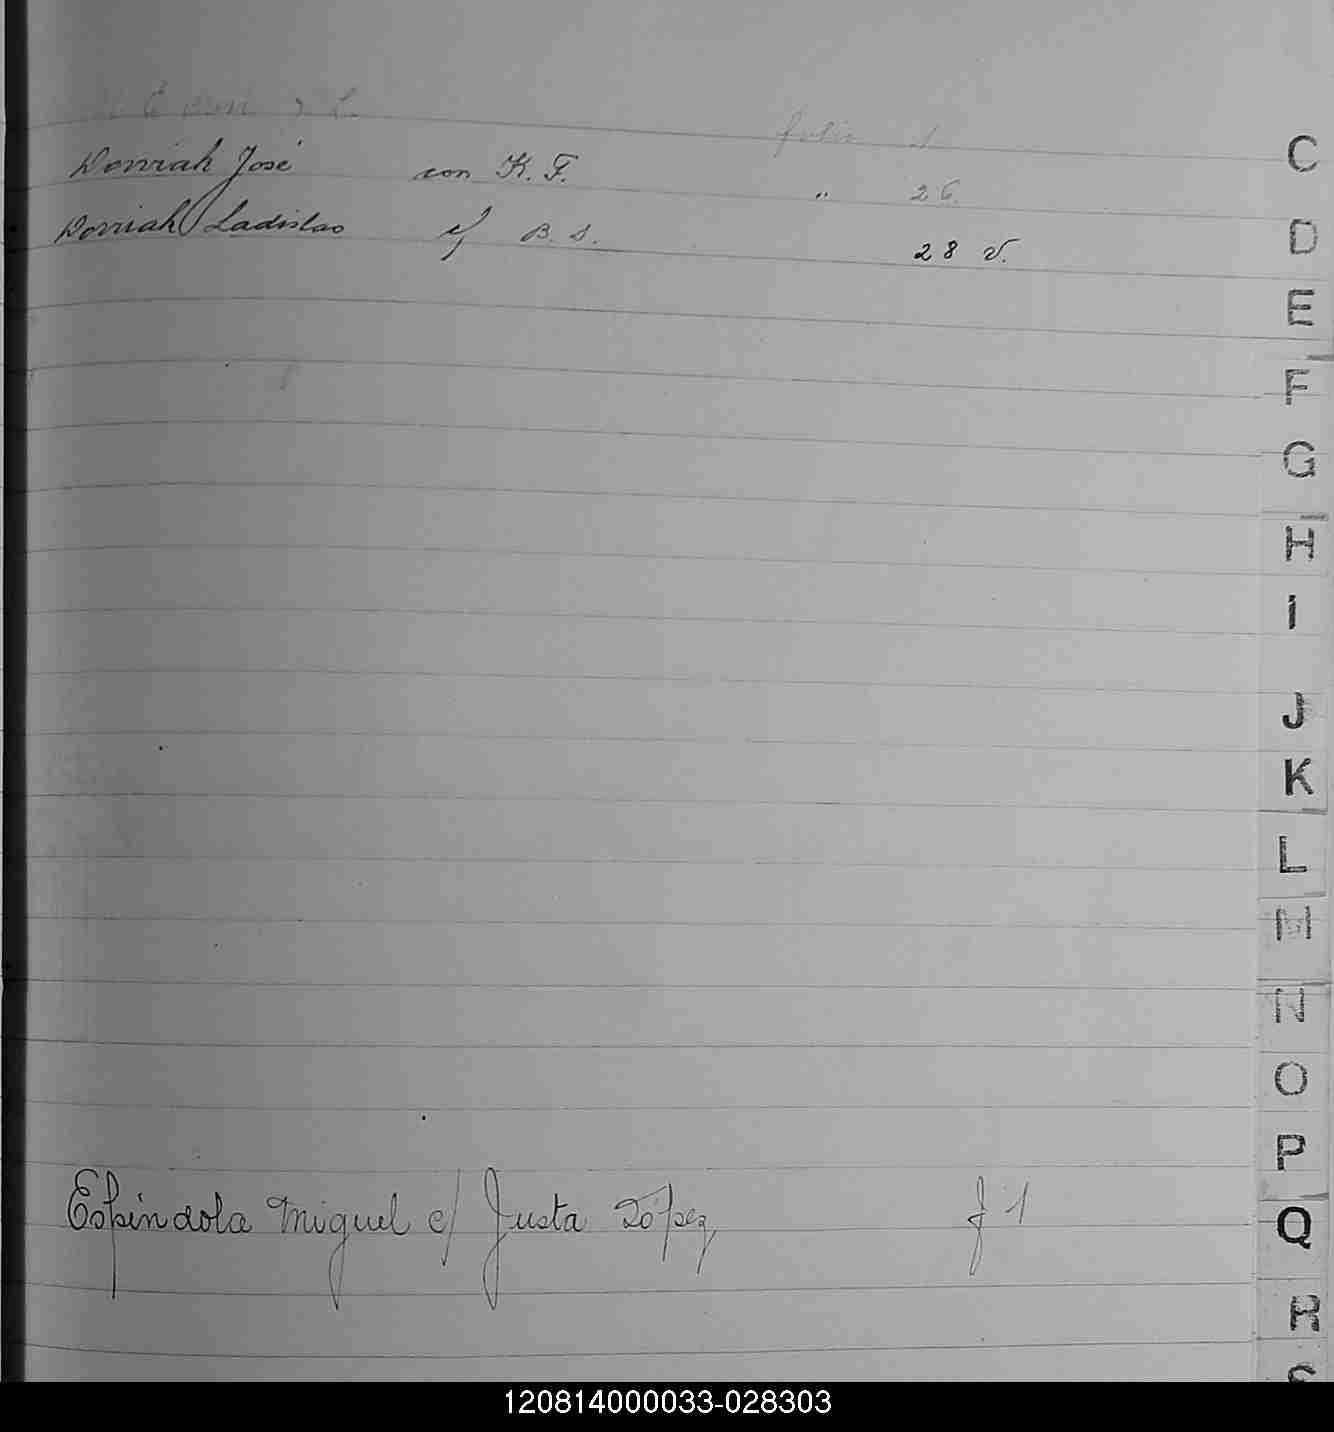 folio 1
José con K. F. " 26
Ladislao c/ B. S. 28 v.
Espíndola Miguel c/ Justa López f 1
C
D
E
F
G
H
I
J
K
L
M
N
O
P
Q
R
S
120814000033-028303